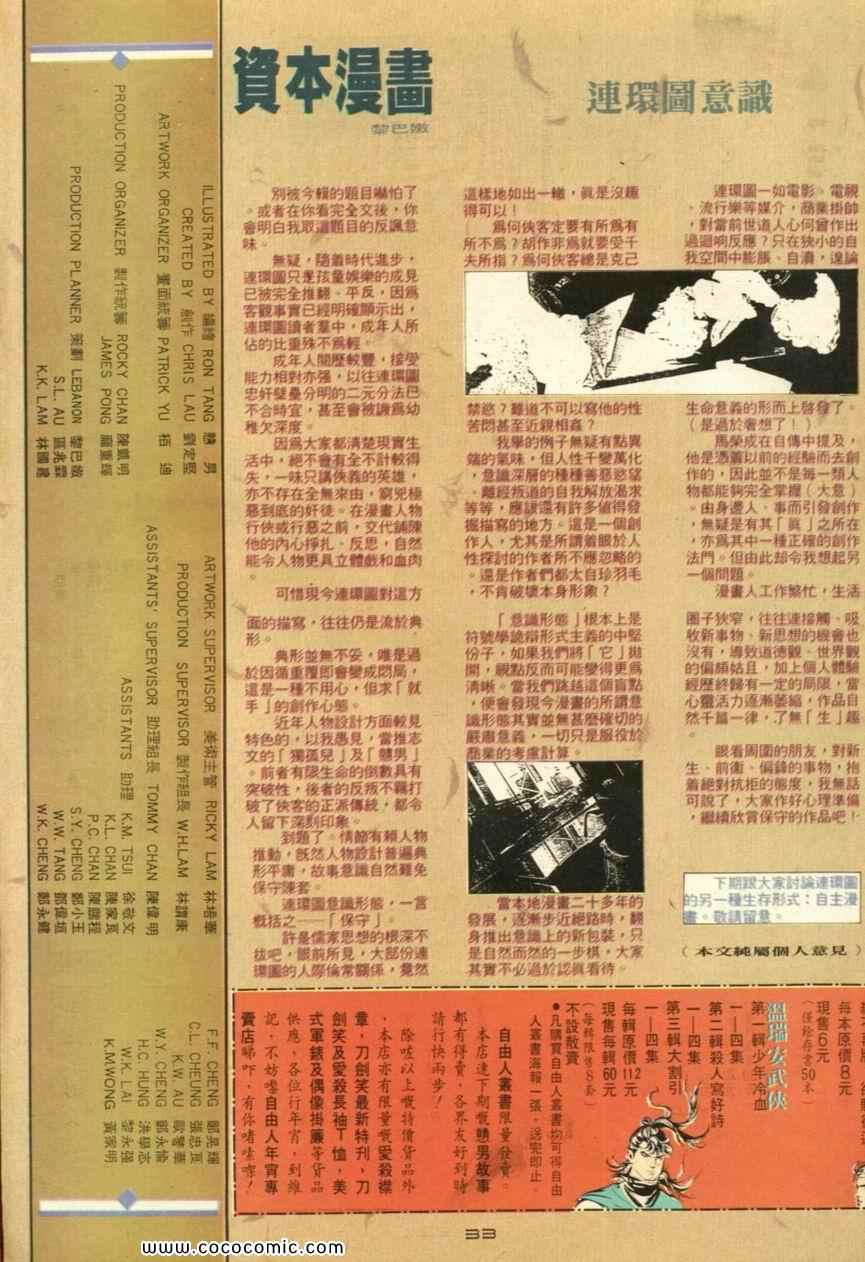 資本漫畫
黎巴嫩
連環圖意識
別被今輯的題目嚇怕了
。或者在你看完全文後，你
會明白我取這題目的反諷意
味。
無疑，隨着時代進步，
連環圖只是孩童娛樂的成見
已被完全推翻、平反，因爲
客觀事實已經明確顯示出，
連環圖讀者羣中，成年人所
佔的比重殊不爲輕。
成年人閱歷較豐，接受
能力相對亦强，以往連環圖
忠奸壁壘分明的二元分法已
不合時宜，甚至會被譏爲幼
稚欠深度。
因爲大家都清楚現實生
活中，絕不會有全不計較得
失，一味只講俠義的英雄，
亦不存在全無來由，窮兇極
惡到底的奸徒。在漫畫人物
行俠或行惡之前，交代舖陳
他的內心掙扎、反思，自然
能令人物更具立體感和血肉
。
可惜現今連環圖對這方
面的描寫，往往仍是流於典
形。
典形並無不妥，唯是過
於因循重覆即會變成悶局，
這是一種不用心，但求「就
手」的創作心態。
近年人物設計方面較見
特色的，以我愚見，當推志
文的「獨孤兒」及「戇男」
。前者有限生命的倒數具有
突破性，後者的反叛不羈打
破了俠客的正派傳統，都令
人留下深刻印象。
到題了。情節有賴人物
推動，既然人物設計普遍典
形平庸，故事意識自然難免
保守陳套。
連環圖意識形態，一言
概括之——「保守」。
許是儒家思想的根深不
拔吧，眼前所見，大部份連
環圖的人際倫常關係，竟然
這樣地如出一轍，眞是沒趣
得可以！
爲何俠客定要有所爲有
所不爲？胡作非爲就要受千
夫所指？爲何俠客總是克己
禁慾？難道不可以寫他的性
苦悶甚至近親相姦？
我舉的例子無疑有點異
端的氣味，但人性千變萬化
，意識深層的種種善惡慾望
、離經叛道的自我解放渴求
等等，應該還有許多值得發
掘描寫的地方。這是一個創
作人，尤其是所謂着眼於人
性探討的作者所不應忽略的
。還是作者們都太自珍羽毛
，不肯破壞本身形象？
「意識形態」根本上是
符號學詭辯形式主義的中堅
份子，如果我們將「它」拋
開，視點反而可能變得更爲
清晰。當我們跳越這個盲點
，便會發現今漫畫的所謂意
識形態其實並無甚麼確切的
嚴肅意義，一切只是服役於
商業的考慮計算。
當本地漫畫二十多年的
發展，逐漸步近絕路時，翻
身推出意識上的新包裝，只
是自然而然的一步棋，大家
其實不必過於認眞看待。
連環圖一如電影、電視
、流行樂等媒介，商業掛帥
，對當前世道人心何曾作出
過迴响反應？只在狹小的自
我空間中膨脹、自瀆，遑論
生命意義的形而上啓發了。
（是過於奢想了！）
馬榮成在自傳中提及，
他是憑着以前的經驗而去創
作的，因此並不是每一類人
物都能夠完全掌握（大意）
。由身邊人、事而引發創作
，無疑是有其「眞」之所在
，亦爲其中一種正確的創作
法門。但由此却令我想起另
一個問題。
漫畫人工作繁忙，生活
圈子狹窄，往往連接觸、吸
收新事物、新思想的機會也
沒有，導致道德觀、世界觀
的偏頗姑且，加上個人體驗
經歷終歸有一定的局限，當
心靈活力逐漸萎縮，作品自
然千篇一律，了無「生」趣
。
眼看周圍的朋友，對新
生、前衞、偏鋒的事物，抱
着絕對抗拒的態度，我無話
可說了，大家作好心理準備
，繼續欣賞保守的作品吧！
下期跟大家討論連環圖
的另一種生存形式：自主漫
畫。敬請留意。
（本文純屬個人意見）
ILLUSTRATED BY 編繪 RON TANG 戇男
CREATED BY 創作 CHRIS LAU 劉定堅
ARTWORK ORGANIZER 畫面統籌 PATRICK YU 栢迪
PRODUCTION ORGANIZER 製作統籌 ROCKY CHAN 陳凱明
JAMES PONG 龐重輝
PRODUCTION PLANNER 策劃 LEBANON 黎巴嫩
S.L. AU 區兆霖
K.K. LAM 林國昌
ARTWORK SUPERVISOR 美術主管 RICKY LAM 林培豪
PRODUCTION SUPERVISOR 製作組長 W.H.LAM 林謂康
ASSISTANTS' SUPERVISOR 助理組長 TOMMY CHAN 陳偉明
ASSISTANTS 助理 K.M. TSUI 徐敬文
K.L. CHAN 陳家良
P.C. CHAN 陳鵬程
S.Y. CHENG 鄭小玉
W.W. TANG 鄧偉垣
W.K. CHENG 鄭永健
F.F. CHENG 鄭晃輝
C.L. CHEUNG 張忠良
K.W. AU 歐譽豪
W.Y. CHENG 鄭永愉
H.C. HUNG 洪學志
W.K. LAI 黎永强
K.M.WONG 黃家明
每本原價8元
現售6元
（僅餘存書50本）
溫瑞安武俠
第一輯少年冷血
一—四集
第二輯殺人寫好詩
一—四集
第三輯大割引
一—四集
每輯原價112元
現售每輯60元
（每輯限售8套）
不設散賣
●凡購買自由人叢書均可得自由
人叢書海報一張，送完即止。
自由人叢書限量發賣。
本店連下期嘅戇男故事
都有得賣，各界友好到時
請行快兩步！
除咗以上嘅特價貨品外
，本店亦有限量嘅愛殺襟
章，刀劍笑最新特刊，刀
劍笑及愛殺長袖T恤，美
式軍錶及偶像掛簾等貨品
供應，各位行年宵，到維
記，不妨嚟自由人年宵專
賣店睇吓，有你着數㗎！
33
www.cococomic.com